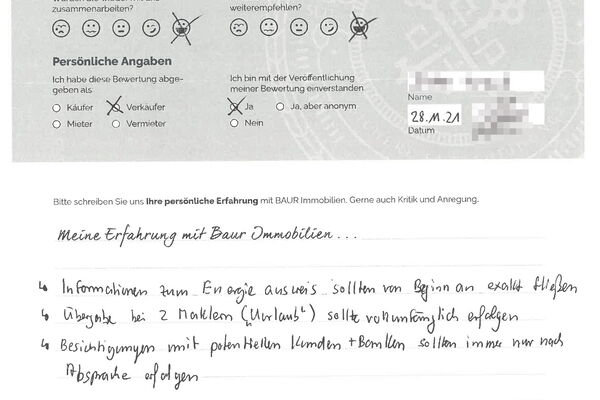 zusammenarbeiten?
weiterempfehlen?
Persönliche Angaben
Ich habe diese Bewertung abge-
geben als
Käufer
Verkäufer
Mieter
Vermieter
Ich bin mit der Veröffentlichung
meiner Bewertung einverstanden
Ja
Ja, aber anonym
Nein
Name
28.11.21
Datum
Bitte schreiben Sie uns Ihre persönliche Erfahrung mit BAUR Immobilien. Gerne auch Kritik und Anregung.
Meine Erfahrung mit Baur Immobilien...
↳ Informationen zum Energieausweis sollten von Beginn an exakt fließen
↳ Übergabe bei 2 Maklern („Urlaub“) sollte vollumfänglich erfolgen
↳ Besichtigungen mit potentiellen Kunden + Banken sollten immer nur nach
Absprache erfolgen